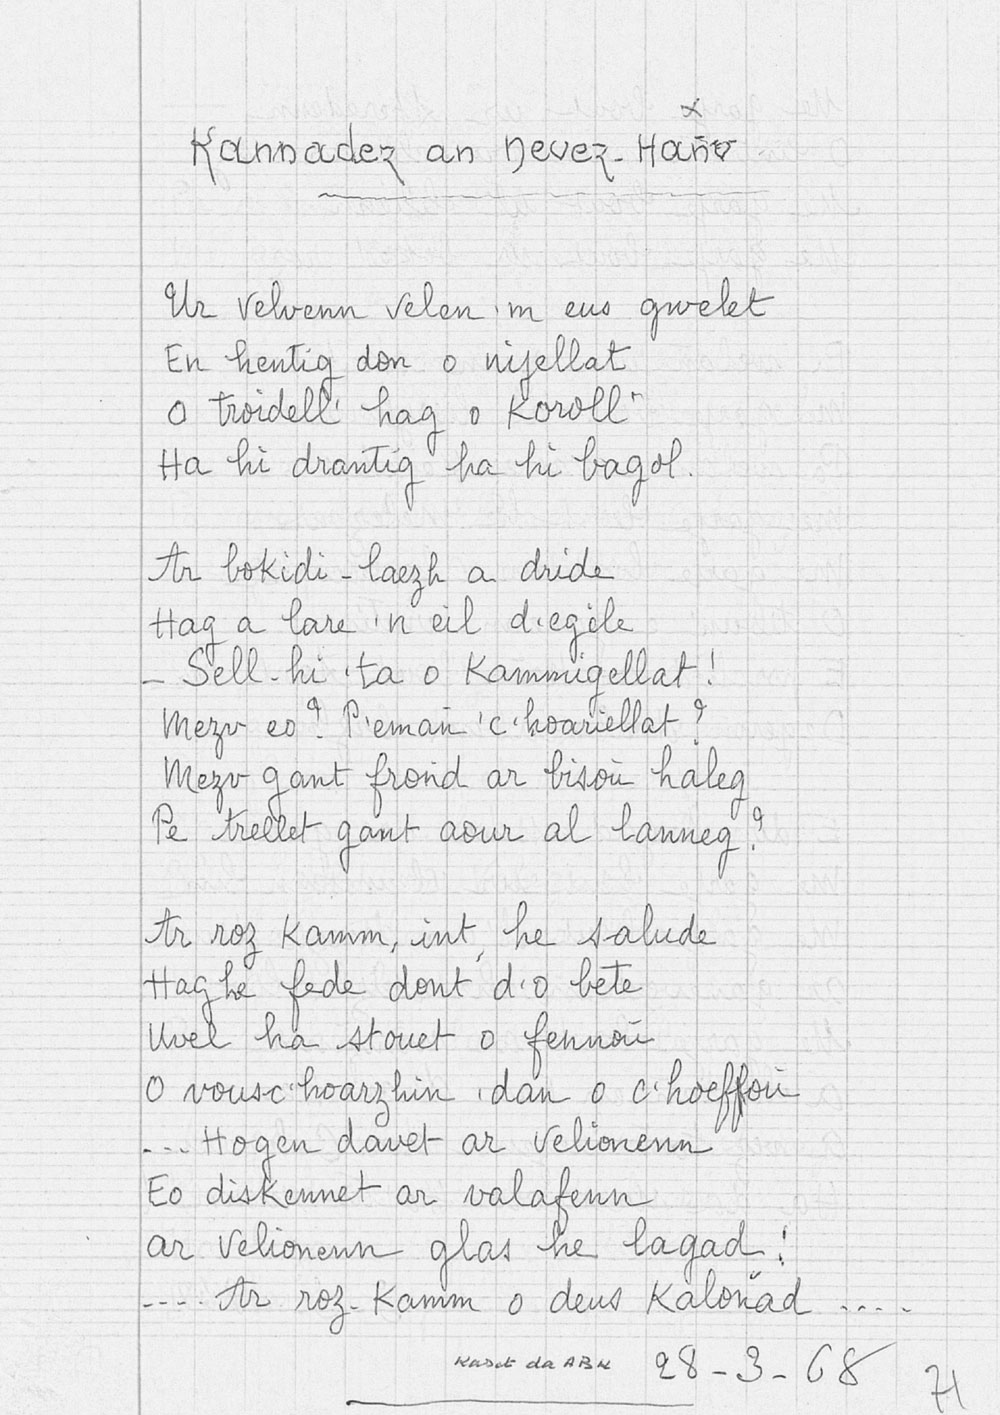 Kannadez an Nevez-Hañv
x
Ur velvenn velen 'm eus gwelet
En hentig don o nijellat
O troidell' hag o koroll'
Ha hi drantig ha hi bagol.
Ar bokidi-laezh a dride
Hag a lare 'n eil d'egile
_ Sell-hi 'ta o kammigellat!
Mezv eo? P'emañ 'c'hoariellat?
Mezv gant frond ar bisoù haleg
Pe trellet gant aour al lanneg?
Ar roz kamm, int, he salude
Hag he fede dont d'o bete
Uvel ha stouet o fennoù
O vousc'hoarzhin 'dan o c'hoeffoù
... Hogen davet ar velionenn
Eo diskennet ar valafenn
ar velionenn glas he lagad!
.... Ar roz-kamm o deus kaloñad ....
Kaset da ABK 28-3-68
71